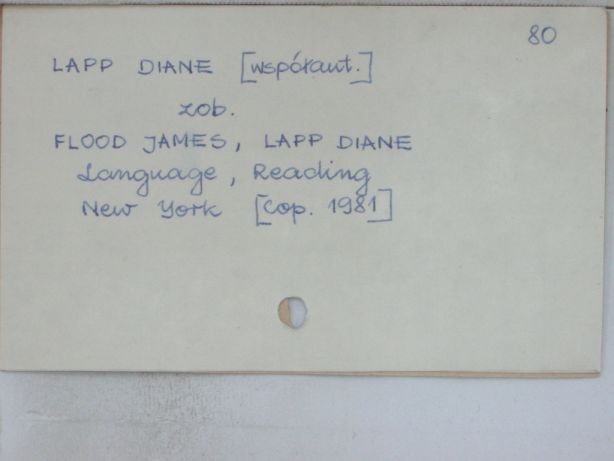 80
LAPP DIANE [współaut.]
zob.
FLOOD JAMES, LAPP DIANE
Language, Reading
New York [Cop. 1981]